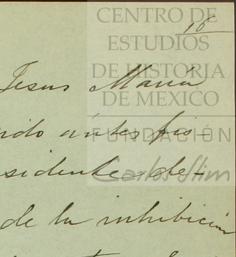 CENTRO DE
ESTUDIOS
DE HISTORIA
DE MEXICO
FUNDACIÓN
Carlos Slim
16
Jesus Maria
ido antes pre-
sidente de-
de la inhibicion